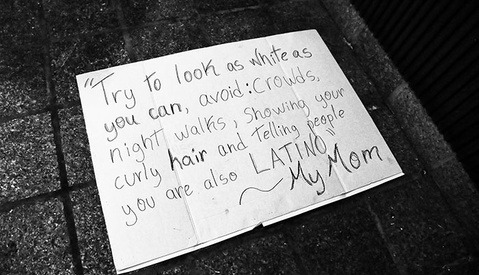 "Try to look as white as
you can, avoid: crowds,
night walks, showing your
curly hair and telling people
you are also LATINO"
~ My Mom